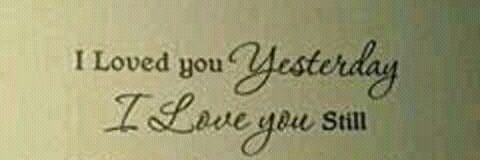 I Loved you Yesterday
I Love you Still